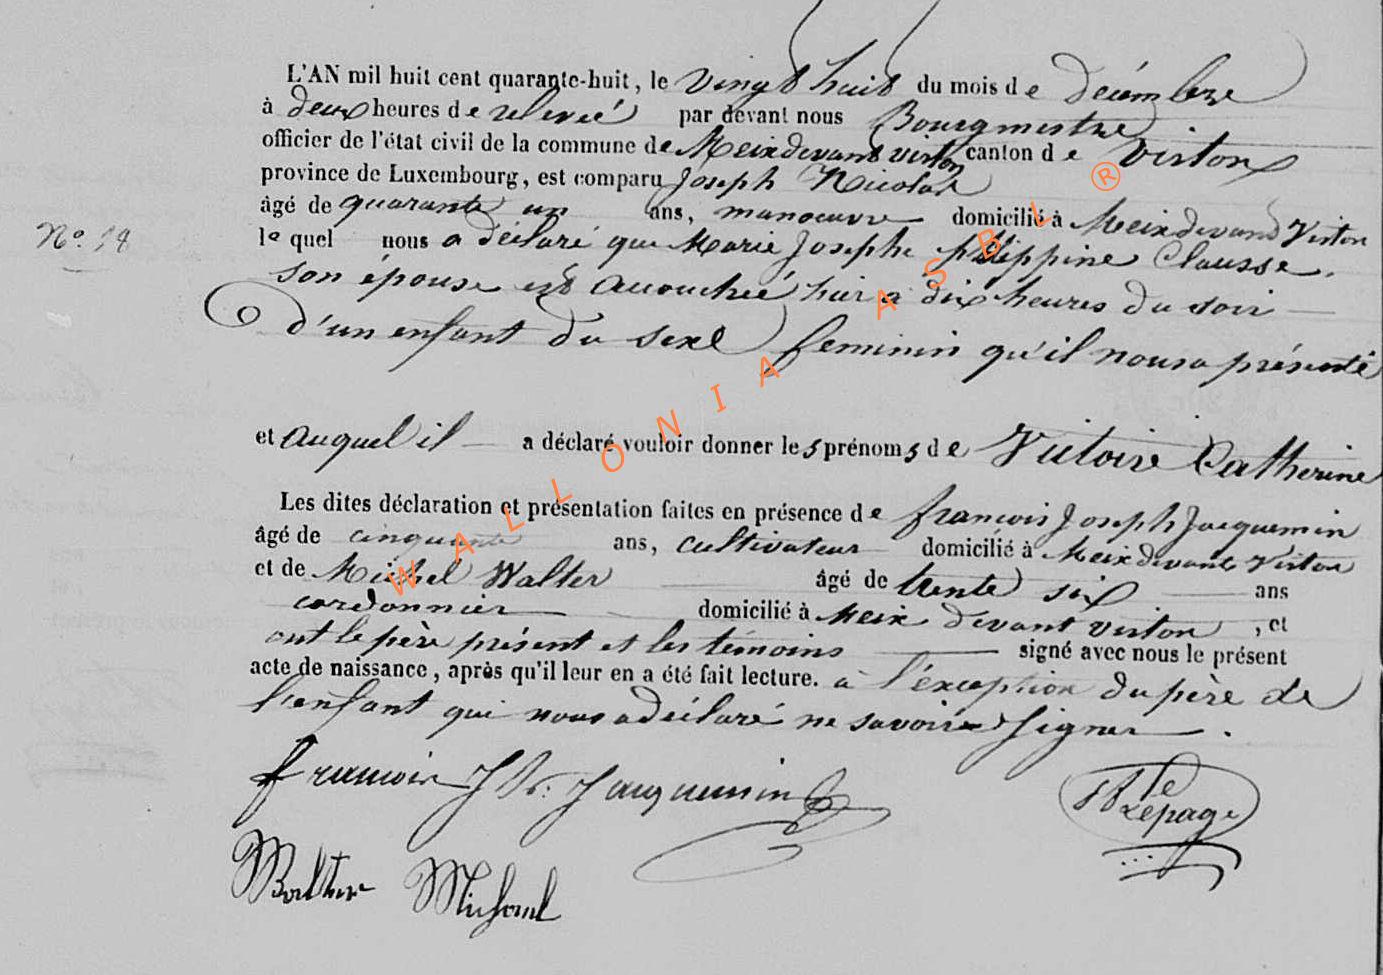 L'AN mil huit cent quarante-huit, le vingt huit du mois de décembre
à deux heures de relevée par devant nous Bourgmestre
officier de l'état civil de la commune de Meix devant virton canton de Virton
province de Luxembourg, est comparu Joseph Nicolas
âgé de quarante un ans, manoeuvre domicilié à Meix devant Virton
N° 18
lequel nous a déclaré que Marie Josephe philippine Clausse,
son épouse est accouchée hier à dix heures du soir
d'un enfant du sexe feminin qu'il nous a présenté
et auquel il a déclaré vouloir donner les prénoms de Victoire Catherine
Les dites déclaration et présentation faites en présence de françois Joseph Jacquemin
âgé de cinquante ans, cultivateur domicilié à Meix devant Virton
et de Michel Walter âgé de trente six ans
cordonnier domicilié à Meix devant virton, et
ont le père présent et les témoins signé avec nous le présent
acte de naissance, après qu'il leur en a été fait lecture. à l'exception du père de
l'enfant qui nous a déclaré ne savoir signer.
françois Jh. Jacquemin
Lepage
Walter Michel
WALLONIA ASBL ®